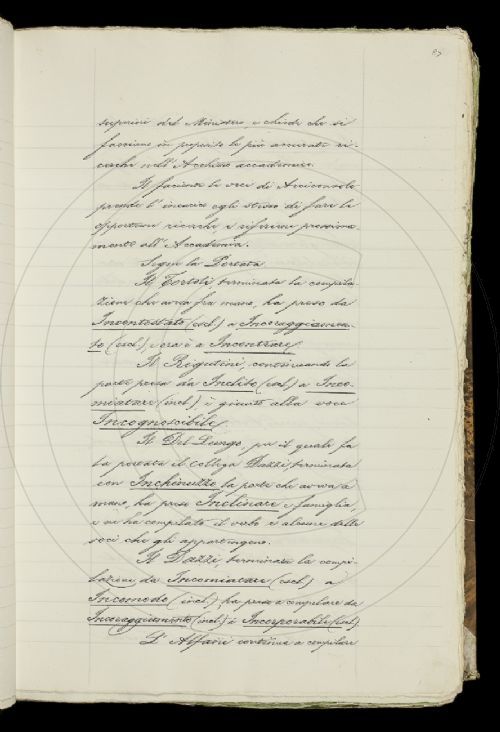 87
superiori del Ministero, e chiede che si
facciano in proposito le più accurate ri-
cerche nell'Archivio accademico.
Il facente le veci di Arciconsolo
prende l'incarico egli stesso di fare le
opportune ricerche, e riferirne prossima-
mente all'Accademia.
Segue la Portata.
Il Tortoli, terminata la compila-
zione che aveva fra mano, ha preso da
Incontestato (escl.) a Incoraggiamen-
to (escl.), e ora è a Incontrare.
Il Rigutini, continuando la
parte presa da Inclito (escl.) a Inco-
minciare (incl.) è giunto alla voce
Incognoscibile.
Il Del Lungo, per il quale fa
la portata il Collega Dazzi, terminata
con Inchinuzzo la parte che aveva a
mano, ha preso Inclinare e famiglia,
e ne ha compilato il verbo e alcune delle
voci che gli appartengono.
Il Dazzi, terminata la compi-
lazione da Incominciare (escl.) a
Incomodo (incl.), ha preso a compilare da
Incoraggiamento (incl.) a Incorporabile (escl.)
L'Alfani continua a compilare